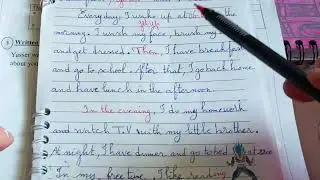 Everyday, I wake up at the
morning. I wash my face, brush my
and get dressed. Then, I have breakfast
and go to school. After that, I go back home
and have lunch in the afternoon.
In the evening, I do my homework
and watch T.V with my little brother.
At night, I have dinner and go to bed at
In my free time, I like reading
3 Written
Yasser w
about you